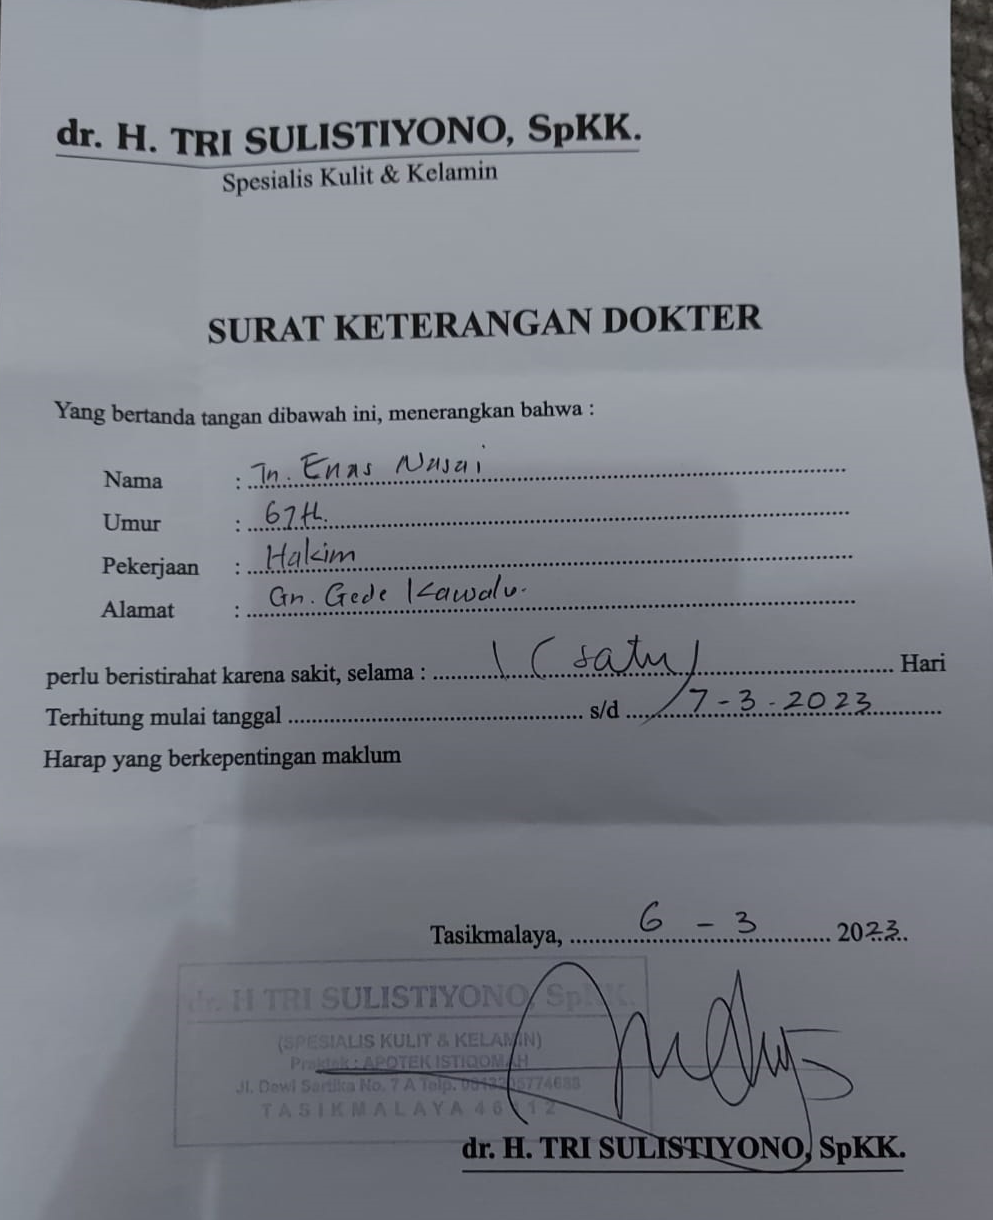 dr. H. TRI SULISTIYONO, SpKK.
Spesialis Kulit & Kelamin
SURAT KETERANGAN DOKTER
Yang bertanda tangan dibawah ini, menerangkan bahwa :
Nama : Tn. Enas Nasai
Umur : 67 th.
Pekerjaan : Hakim
Alamat : Gn. Gede Kawalu.
perlu beristirahat karena sakit, selama : 1 (satu) Hari
Terhitung mulai tanggal s/d 7-3-2023
Harap yang berkepentingan maklum
Tasikmalaya, 6 - 3 2023.
dr. H TRI SULISTIYONO, SpKK.
(SPESIALIS KULIT & KELAMIN)
Praktek : APOTEK ISTIQOMAH
Jl. Dewi Sartika No. 7 A Telp.
TASIKMALAYA
dr. H. TRI SULISTIYONO, SpKK.